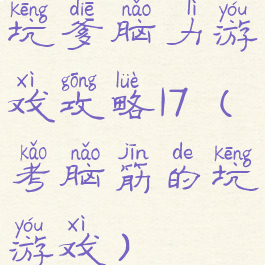 kēng diē nǎo lì yóu
坑爹脑力游
xì gōng lüè
戏攻略17（
kǎo nǎo jīn de kēng
考脑筋的坑
yóu xì
游戏）